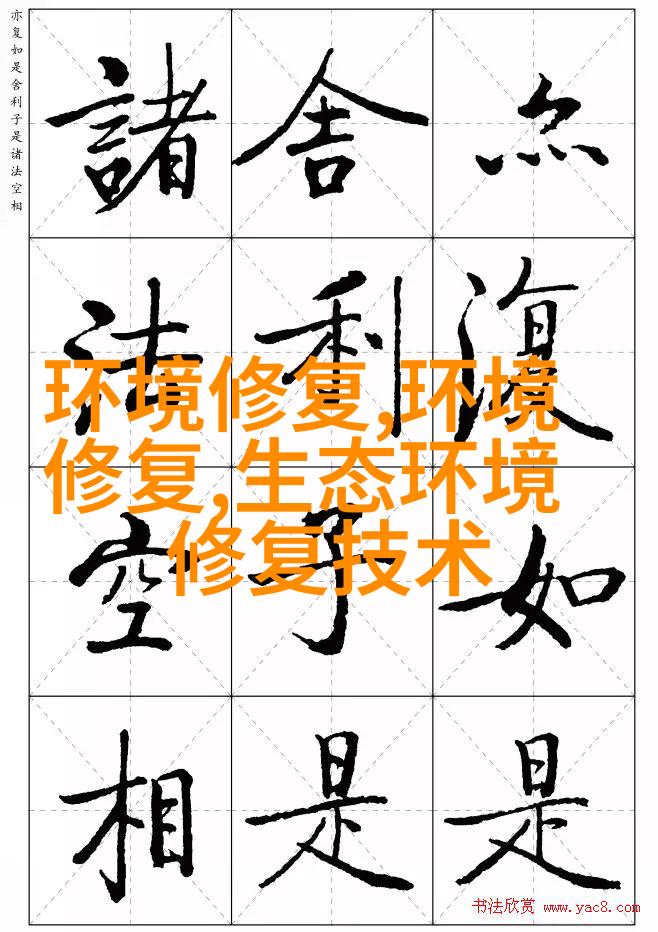 亦复如是舍利子是诸法空相
亦復如是
舍利子是
諸法空相
环境修复,环境
修复,生态环境
修复技术
书法欣赏 www.yac8.com